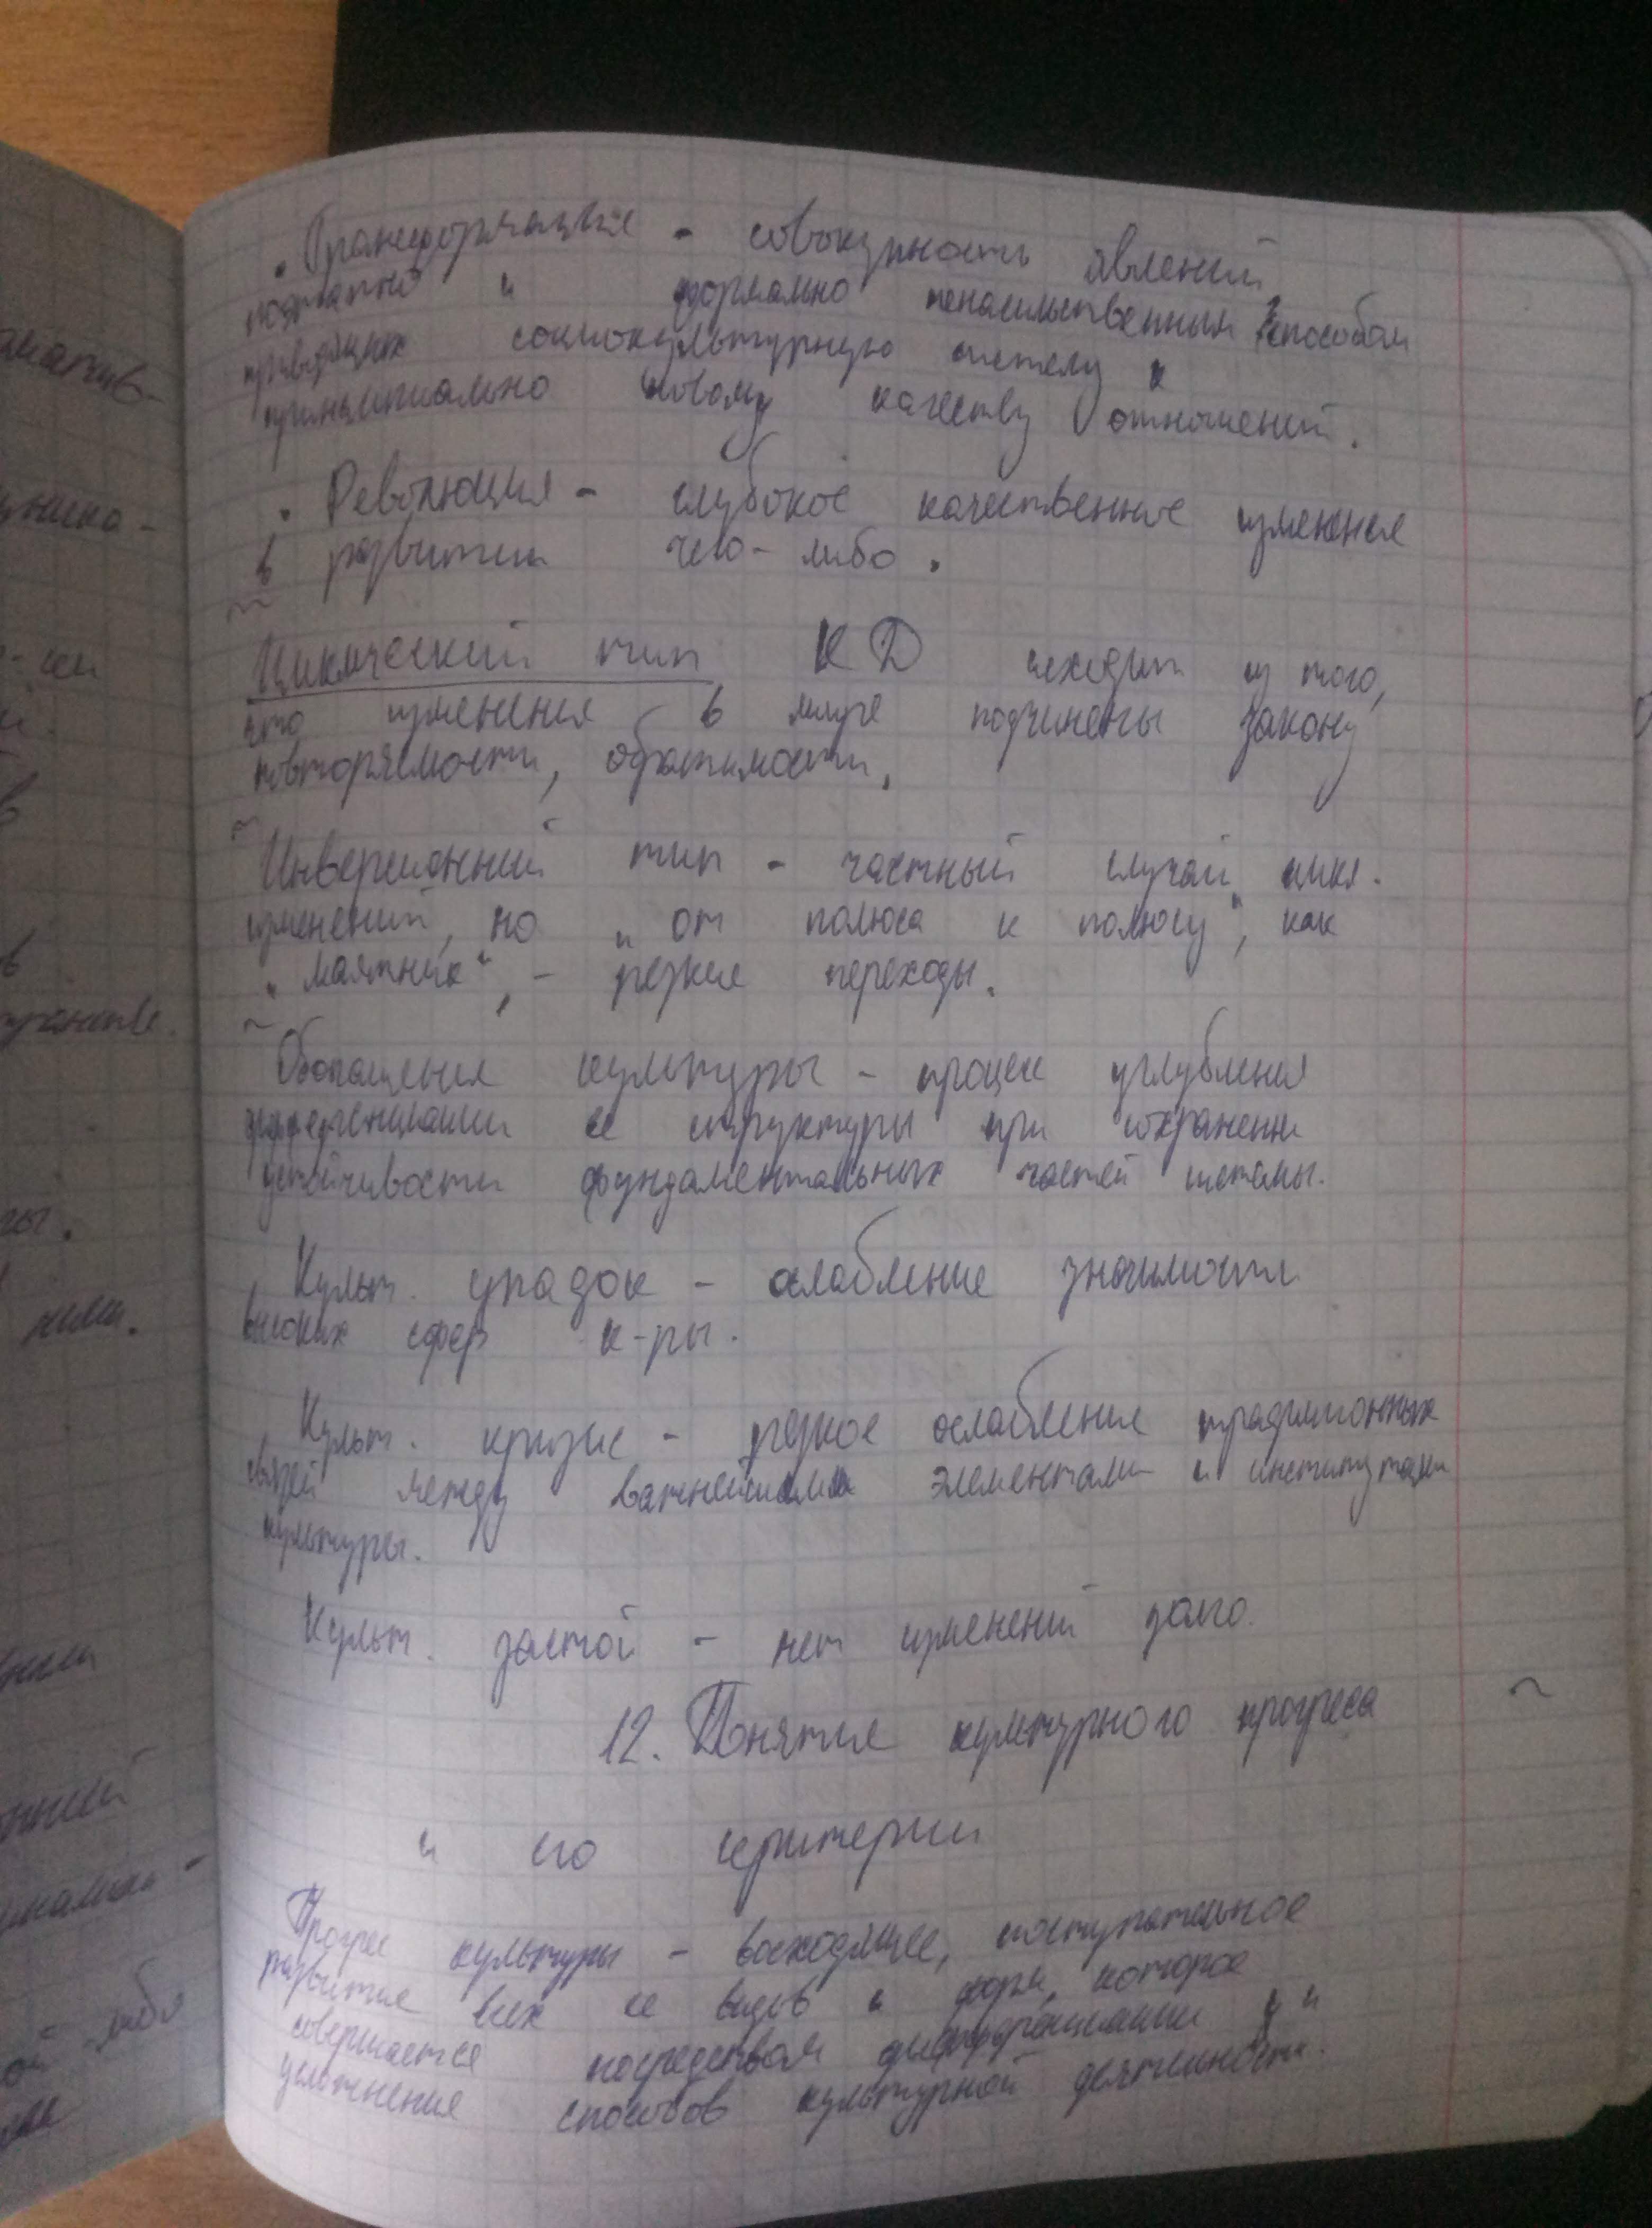 • Трансформация - совокупность явлений,
поэтапно и формально ненасильственным способом
приводящих социокультурную систему к
принципиально новому качеству отношений.
• Революция - глубокое качественное изменение
в развитии чего-либо.
Циклический тип КД исходит из того,
что изменения в мире подчинены закону
повторяемости, обратимости.
Инверсионный тип - частный случай цикл.
изменений, но „от полюса к полюсу", как
„маятник", - резкие переходы.
Обогащения культуры - процесс углубления
дифференциации ее структуры при сохранении
устойчивости фундаментальных частей системы.
Культ. упадок - ослабление значимости
высоких сфер к-ры.
Культ. кризис - резкое ослабление традиционных
связей между важнейшими элементами и институтами
культуры.
Культ. застой - нет изменений долго.
12. Понятие культурного прогресса
и его критерии
Прогресс культуры - восходящее, поступательное
развитие всех ее видов и форм, которое
совершается посредством дифференциации и
усложнения способов культурной деятельности.